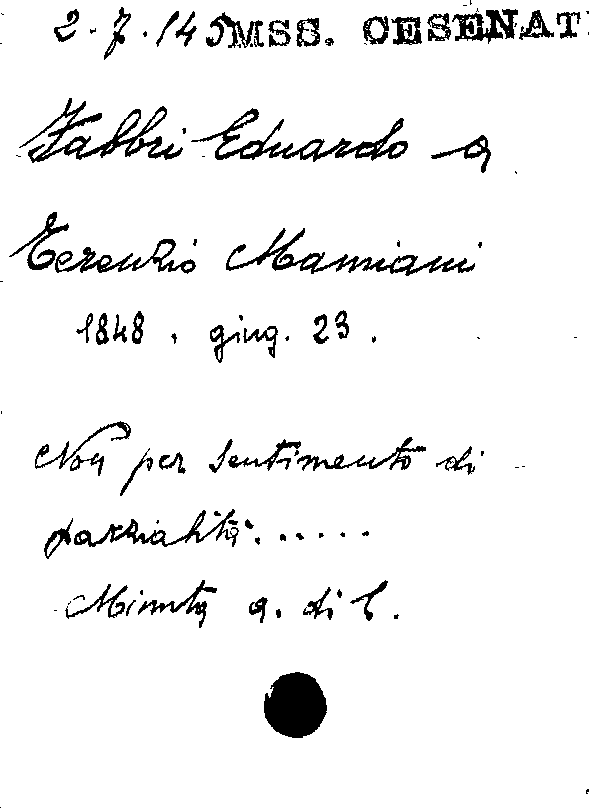 2.7.145 MSS. CESENAT
Fabbri Eduardo a
Terenzio Mamiani
1848. giug. 23.
Non per sentimento di
parzialità.....
Minuta a. di C.